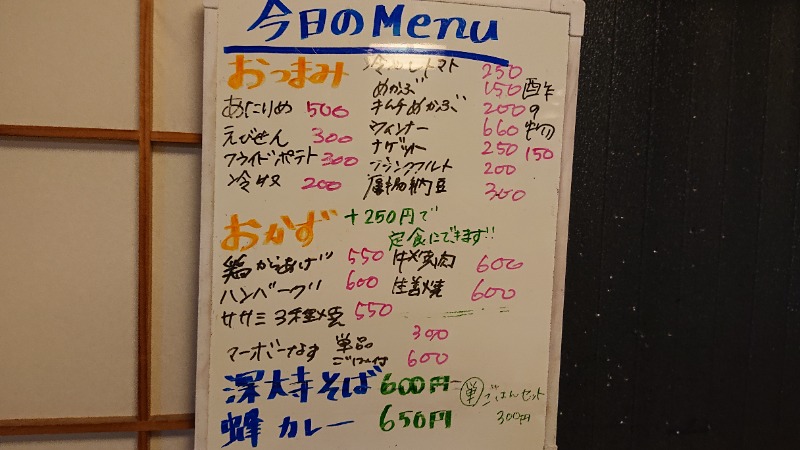 今日のMenu
おつまみ
あたりめ 500
えびせん 300
フライドポテト 300
冷奴 200
冷やしトマト 250
めかぶ 150
キムチめかぶ 200
ウィンナー 660
ナゲット 250
フランクフルト 200
納豆 300
酢の物 150
おかず +250円で
定食にできます!!
鶏からあげ 550
ハンバーグ 600
ササミ3種焼 550
マーボーなす 単品 300
ごはん付 600
焼肉 600
生姜焼 600
深大寺そば 600円
蜂カレー 650円
単 ごはんセット
300円